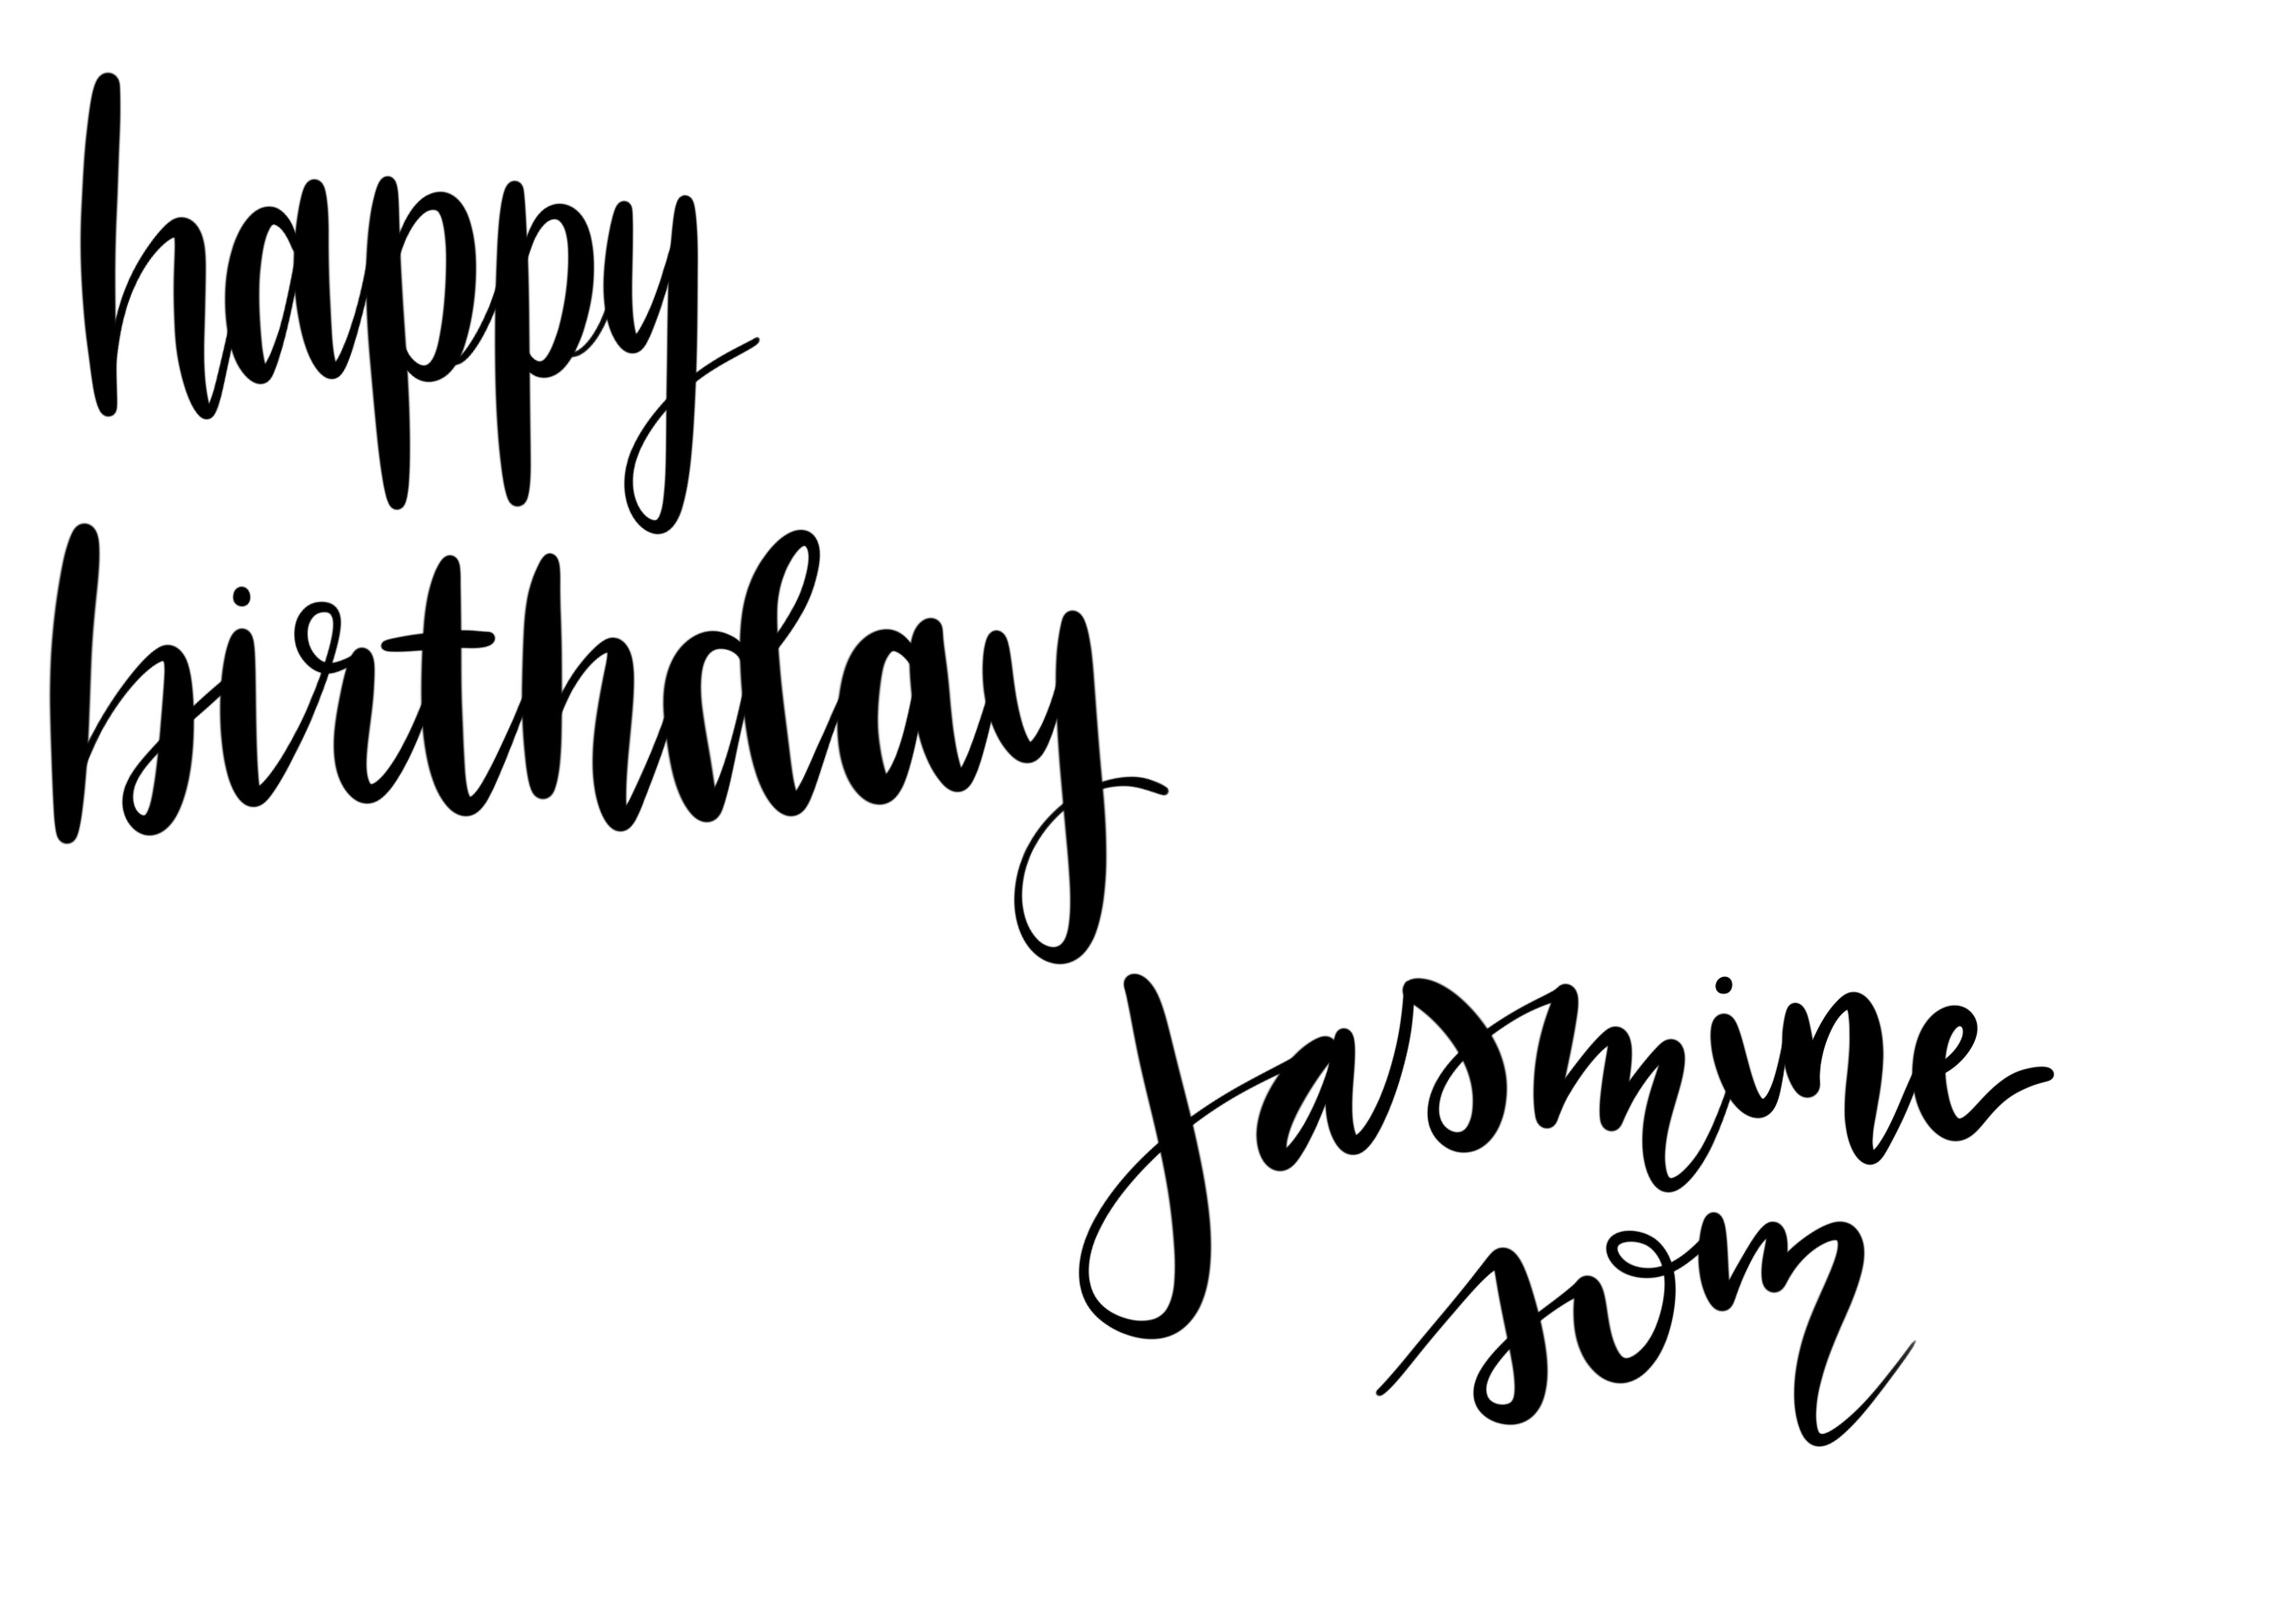 happy
birthday
Jasmine
som